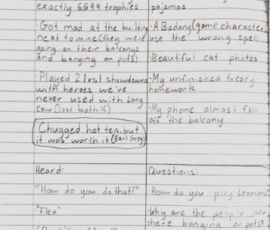 exactly 6599 trophies
Got mad at the building
next to mine (they were
going on their balconys
and banging on pots)
Played 2 1vs1 showdowns
with heroes we've
never used with
(lost both :()
Chugged hot tea, but
it was worth it (Earl Grey)
Heard:
"How do you do that?"
"Flex"
pajamas
A Badang (game character)
use the wrong spell
Beautiful cat photos
My unfinished theory
homework
My phone almost fall
off the balcony
Questions:
How do you play
Why are the people over
there banging on pots?